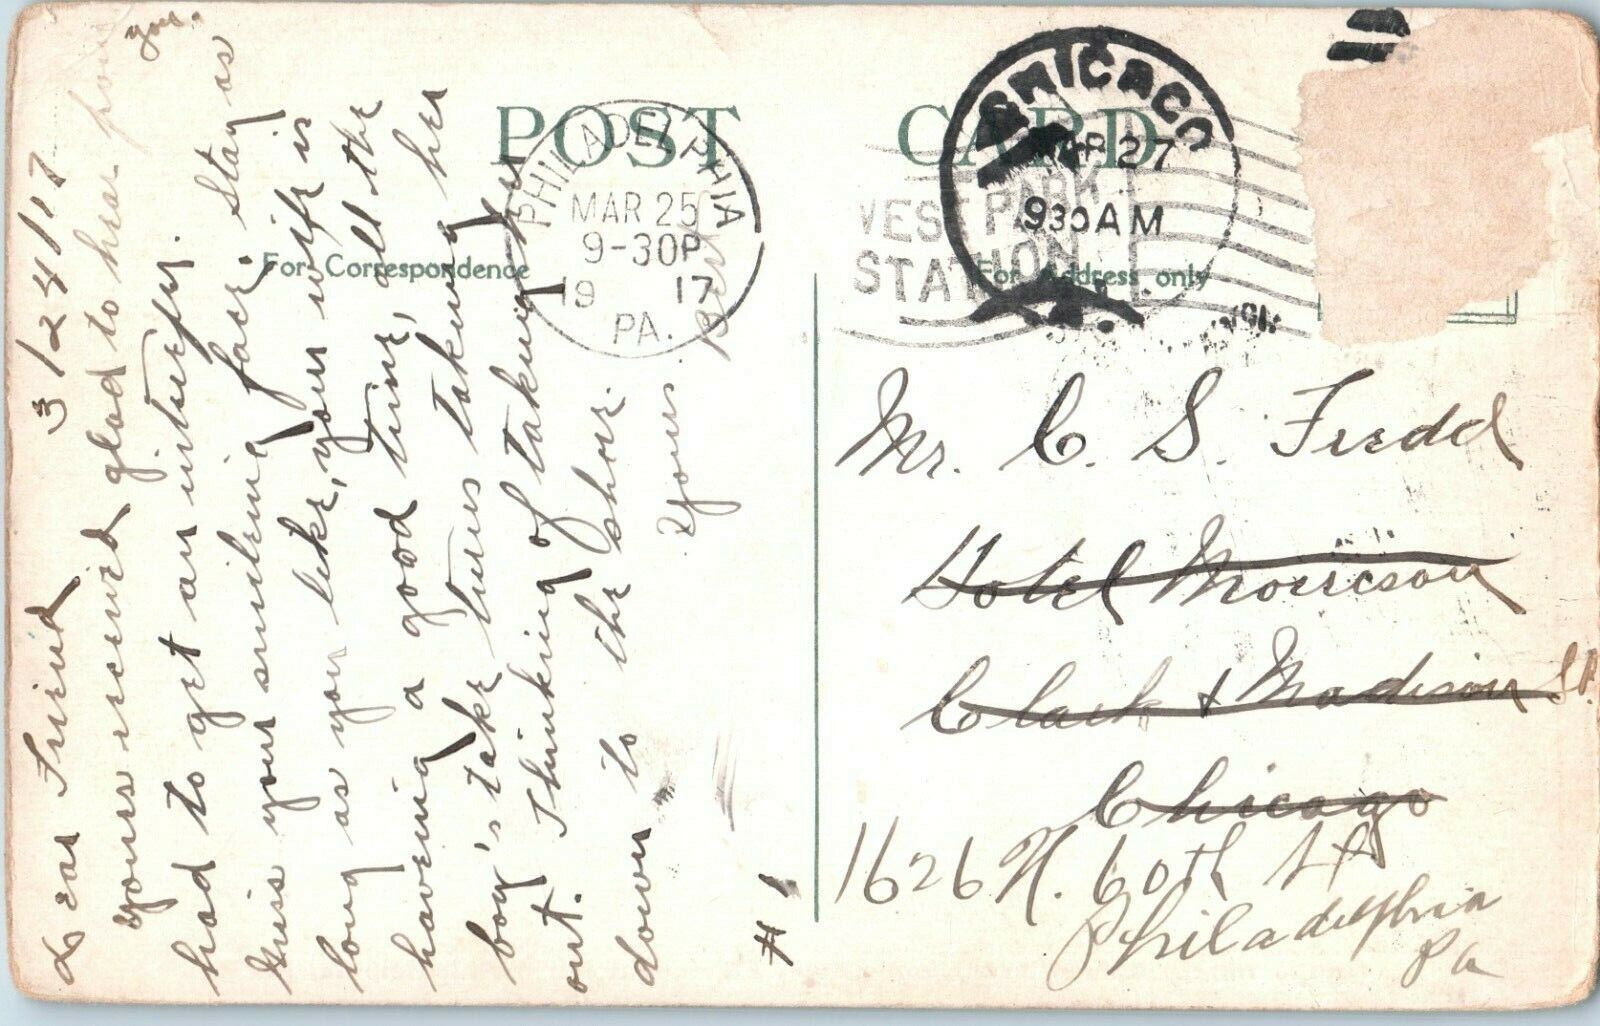 3/24/17
Dear Friend
yours received glad to hear from
you.
had to get an interpr.
Guess your smileing face. Stay as
long as you like, your wife is
haveing a good time, all the
boy's take turns takeing her
out. Thinking of takeing her
down to the shore.
Yours
Bert
#1
POST CARD
For Correspondence
For Address only
PHILADELPHIA
MAR 25
9-30P
19 17
PA.
WEST PARK
STATION
CHICAGO
27
930AM
Mr. C. S. Fredd
Hotel Morrison
Clark & Madison St
Chicago
1626 N. 60th St
Philadelphia
Pa